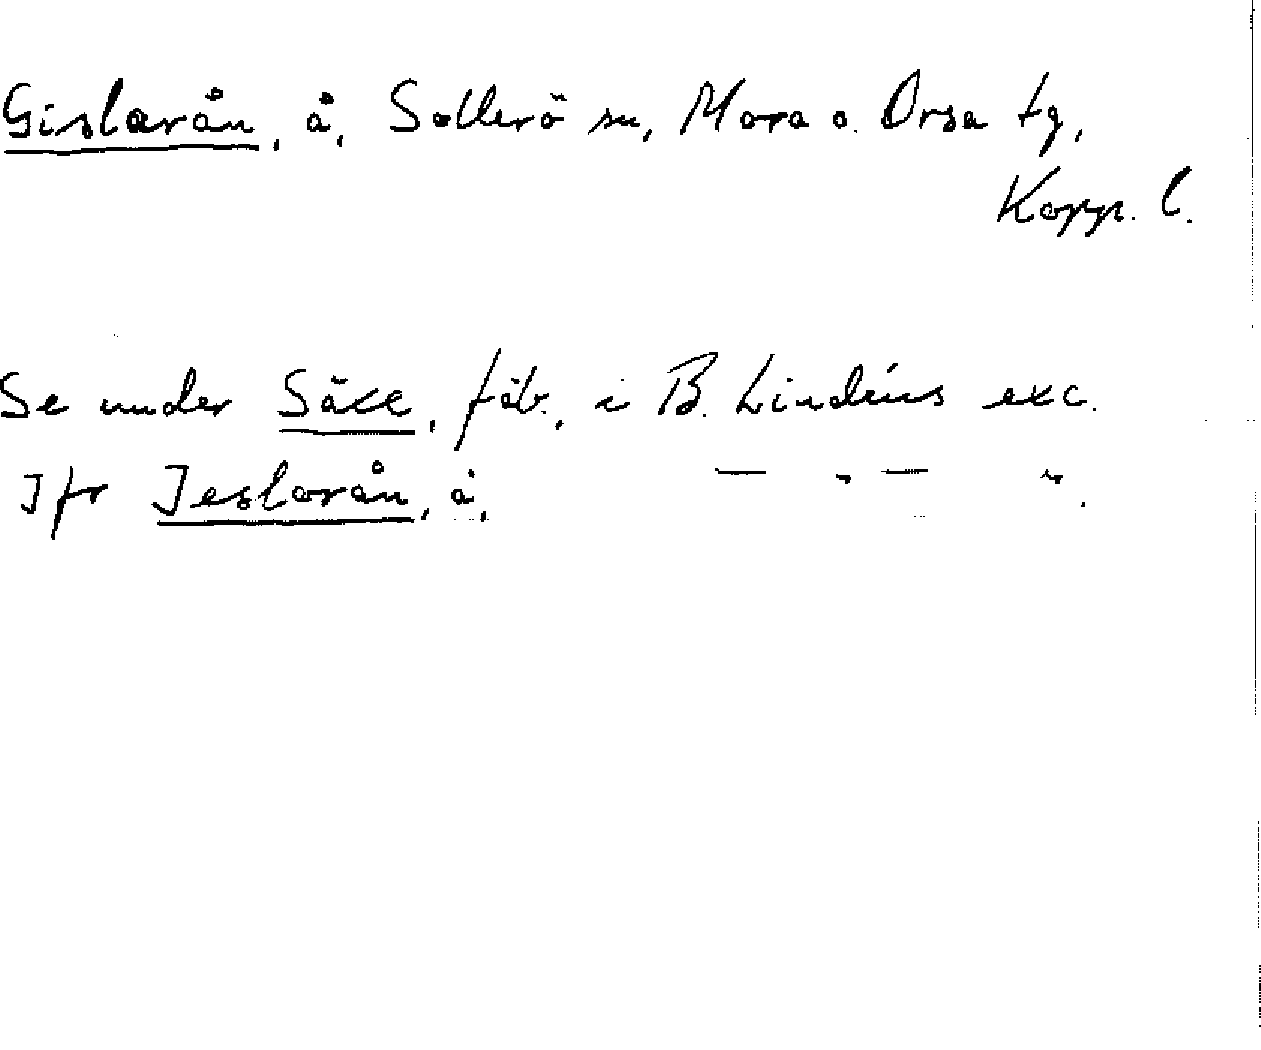 Gislarån, å, Sollerö sn, Mora o. Orsa tg,
Kopp. l.
Se under Säxe, fäb., i B. Lindéns exc.
Jfr Jeslorån, å, — „ — ".